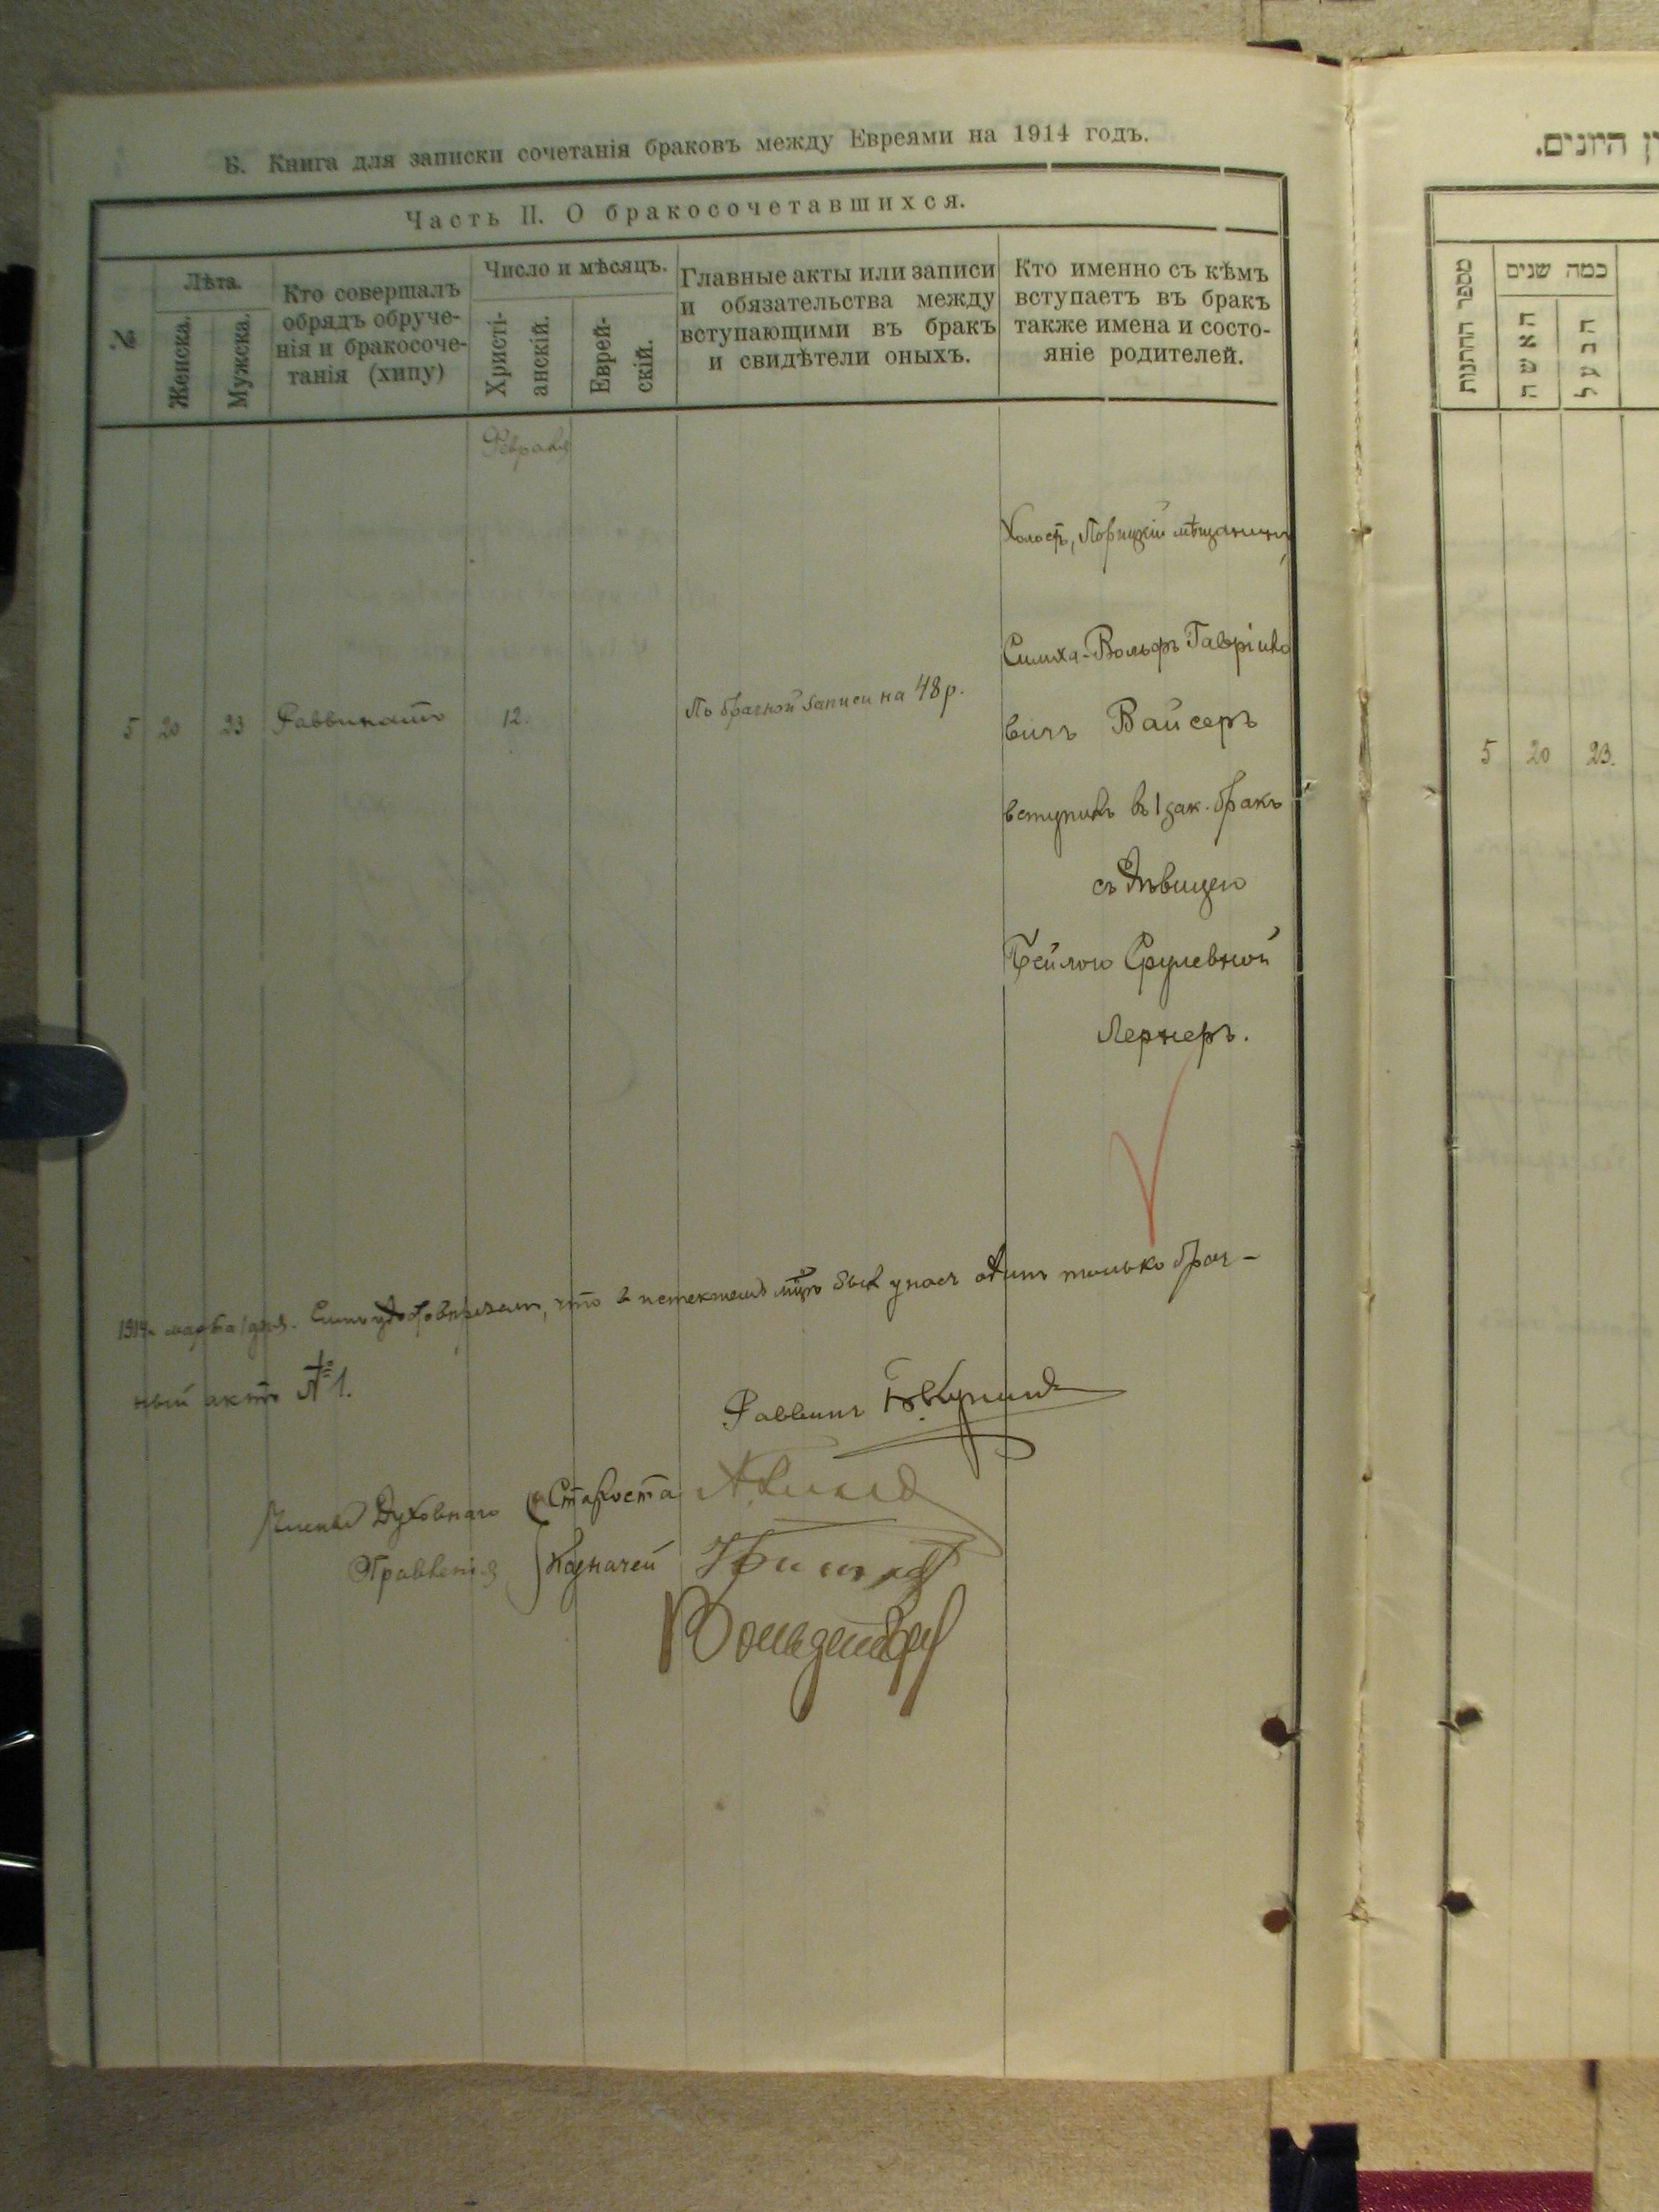 Б. Книга для записки сочетанія браковъ между Евреями на 1914 годъ.
Часть II. О бракосочетавшихся.
№
Лѣта.
Женска.
Мужска.
Кто совершалъ
обрядъ обруче-
нія и бракосоче-
танія (хипу)
Число и мѣсяцъ.
Христі-
анскій.
Еврей-
скій.
Главные акты или записи
и обязательства между
вступающими въ бракъ
и свидѣтели оныхъ.
Кто именно съ кѣмъ
вступаетъ въ бракъ
также имена и состо-
яніе родителей.
Февраля
5 20 23 Раввинатъ 12. По брачной записи на 48 р.
Холостъ, Порицкій мѣщанинъ
Симха-Вольфъ Гавріило
вичъ Вайсеръ
вступилъ въ 1 зак. бракъ
съ дѣвицею
Бейлою Срулевной
Лернеръ.
1914 г. марта 1 дня. Симъ удостовѣряемъ, что в истекшемъ мцѣ былъ у насъ одинъ только брач-
ный актъ № 1.
Раввинъ
Члены Духовнаго
Правленія
Староста
Казначей
ין הזוגים.
מספר החתנות
כמה שנים
האשה
הבעל
5 20 23.